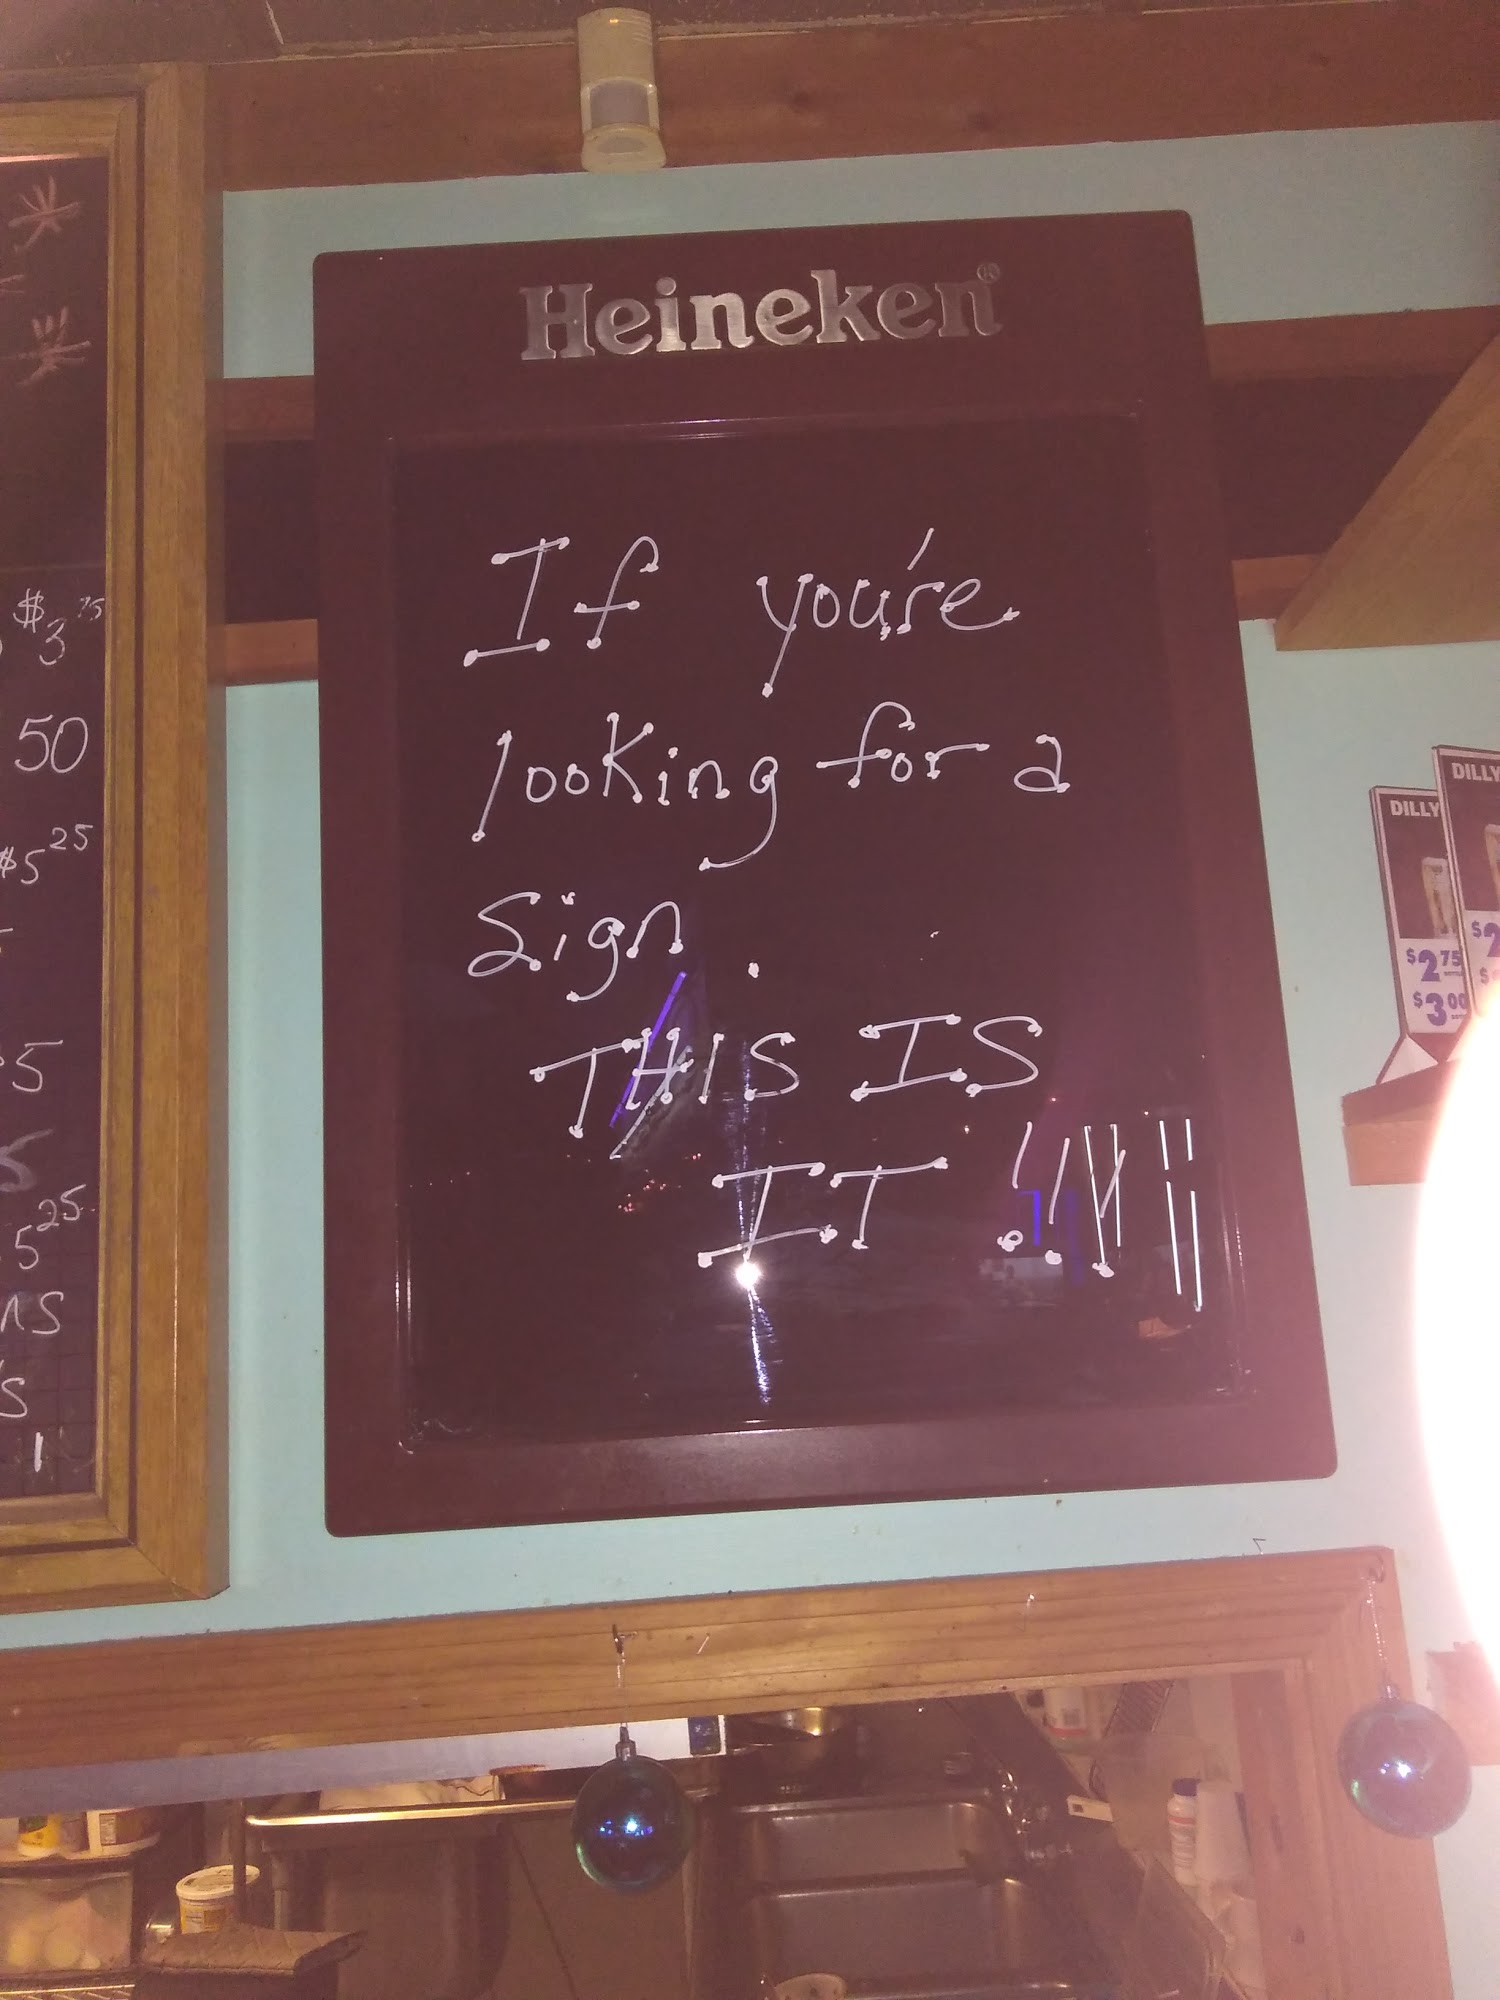 Heineken®
If you're
looking for a
sign.
THIS IS
IT !!!
$3 75
50
$5 25
5
5
5 25
DILLY
DILLY
$2 75
$3 00
$2